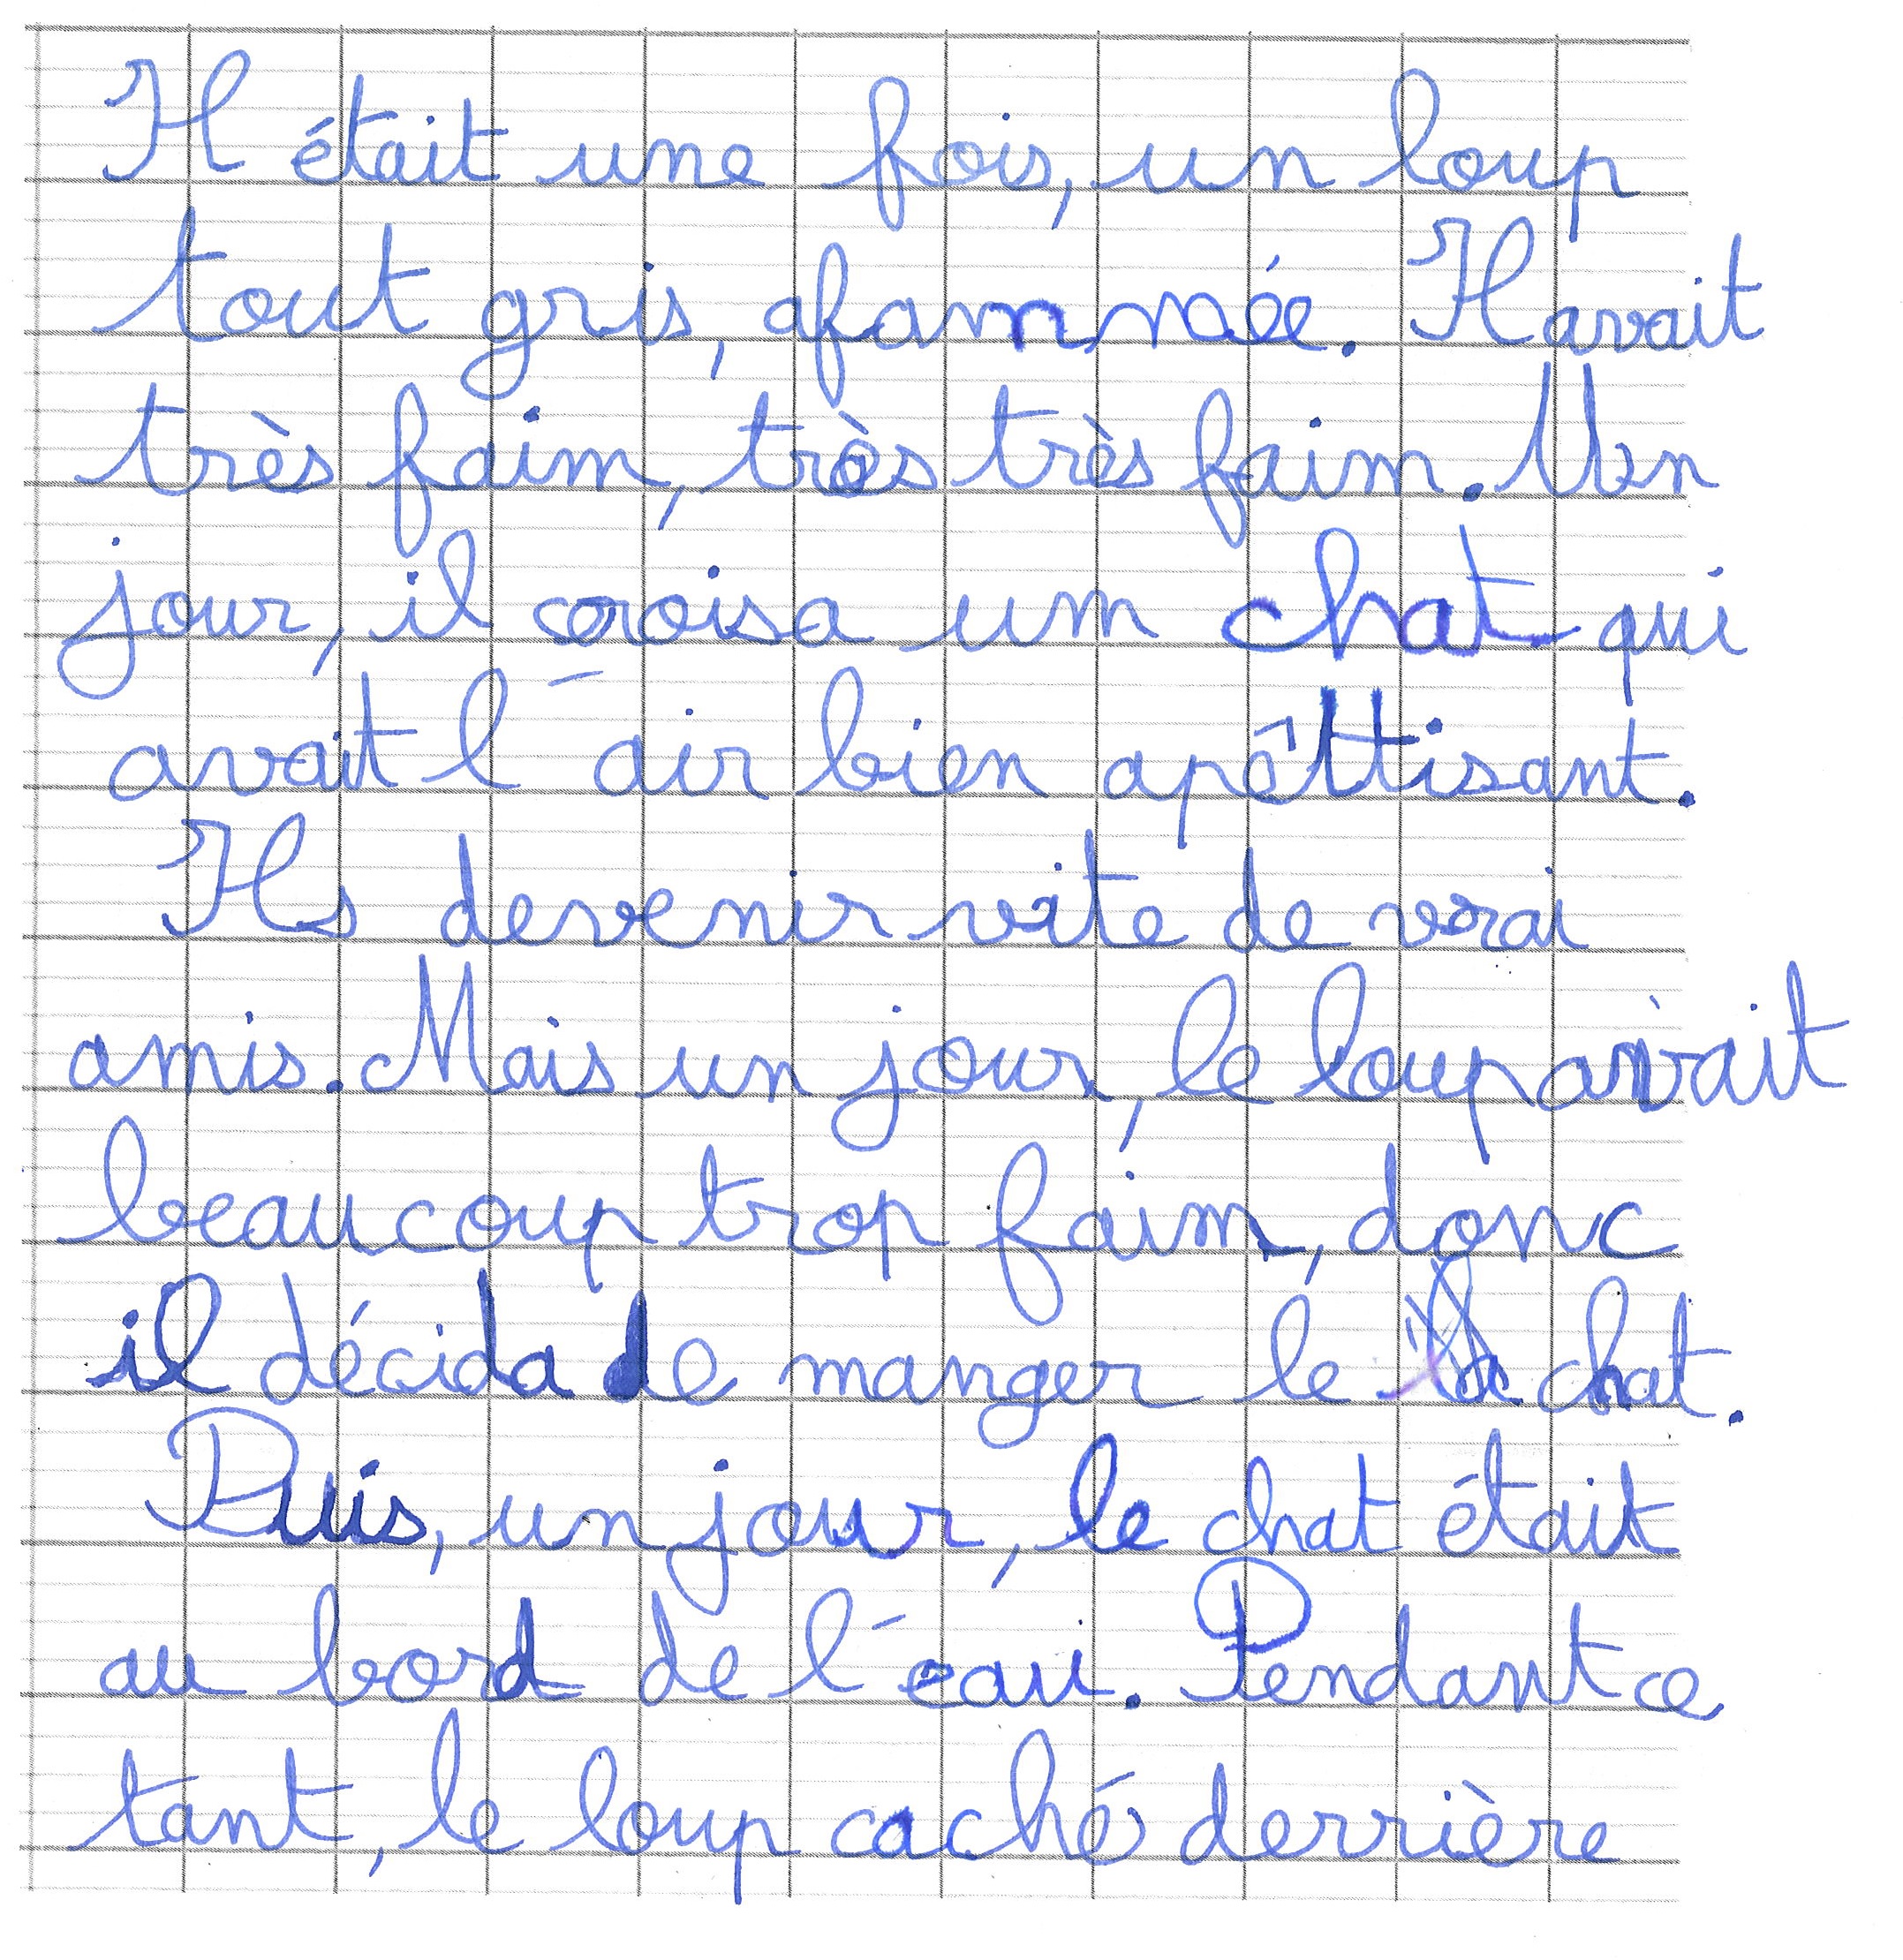 Il était une fois, un loup
tout gris, afammée. Il avait
très faim, très très faim. Un
jour, il croisa um chat qui
avait l'air bien apêttisant.
Ils devenir vite de vrai
amis. Mais un jour, le loup avait
beaucoup trop faim, donc
il décida de manger le chat.
Puis, un jour, le chat était
au bord de l'eau. Pendant ce
tant, le loup caché derrière